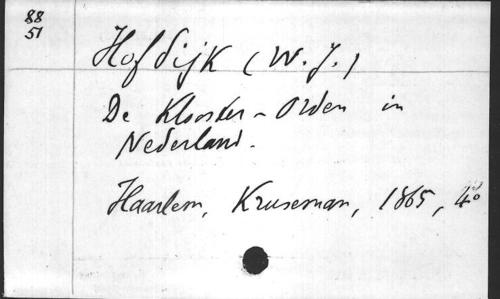 88
51
Hofdijk (W. J.)
De Klooster-Orden in
Nederland.
Haarlem, Kruseman, 1865, 4°